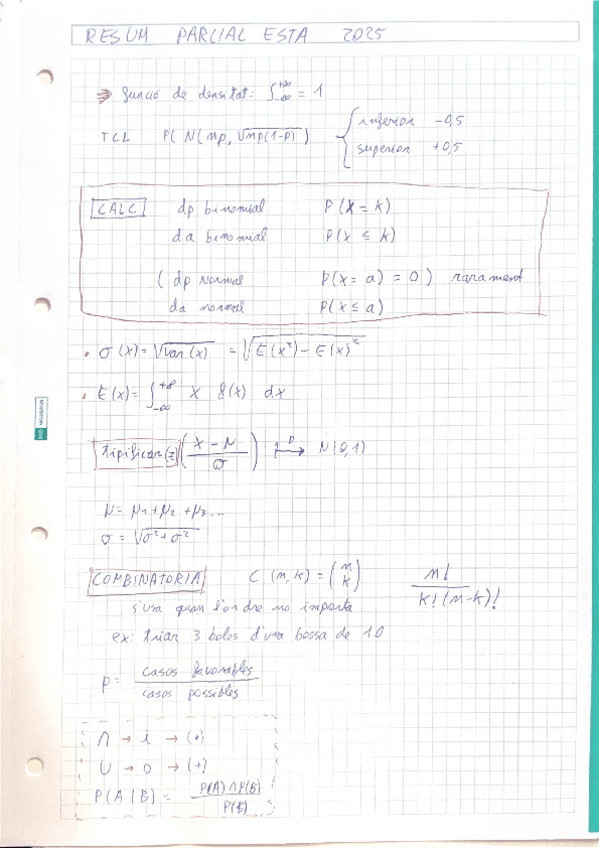 RESUM PARCIAL ESTA 2025
⇒ funció de densitat: ∫_{-∞}^{+∞} = 1
TCL P( N(np, √np(1-p)) { inferior -0,5
superior +0,5
CALC. dp binomial P(X = k)
da binomial P(X ≤ k)
( dp normal P(X = a) = 0 ) rarament
da normal P(X ≤ a)
• σ(X) = √var(X) = √E(X²) - E(X)²
• E(X) = ∫_{-∞}^{+∞} X f(x) dx
tipificar(z) (X - N / σ) D→ N(0,1)
μ = μ1 + μ2 + μ3 ...
σ = √σ² + σ²
COMBINATORIA C(n,k) = (n k) n! / k!(n-k)!
s'usa quan l'ordre no importa
ex: triar 3 boles d'una bossa de 10
p = casos favorables / casos possibles
∩ → i → (•)
U → o → (+)
P(A|B) = P(A)∩P(B) / P(B)